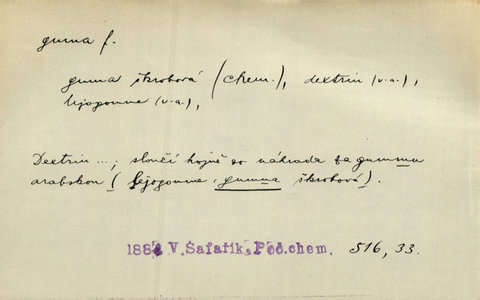 guma f.
guma škrobová (chem.), dextrin (v.a.),
lejogomme (v.a.),
Dextrin ...; slouží hojně co náhrada za gummu
arabskou (lejogomme, gumma škrobová).
1882 V.Šafařík, Poč.chem. 516, 33.